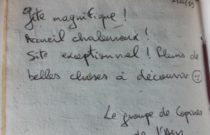 Gîte magnifique !
Accueil chaleureux !
Site exceptionnel ! Pleins de
belles choses à découvrir ☺
Le groupe de Copines
de